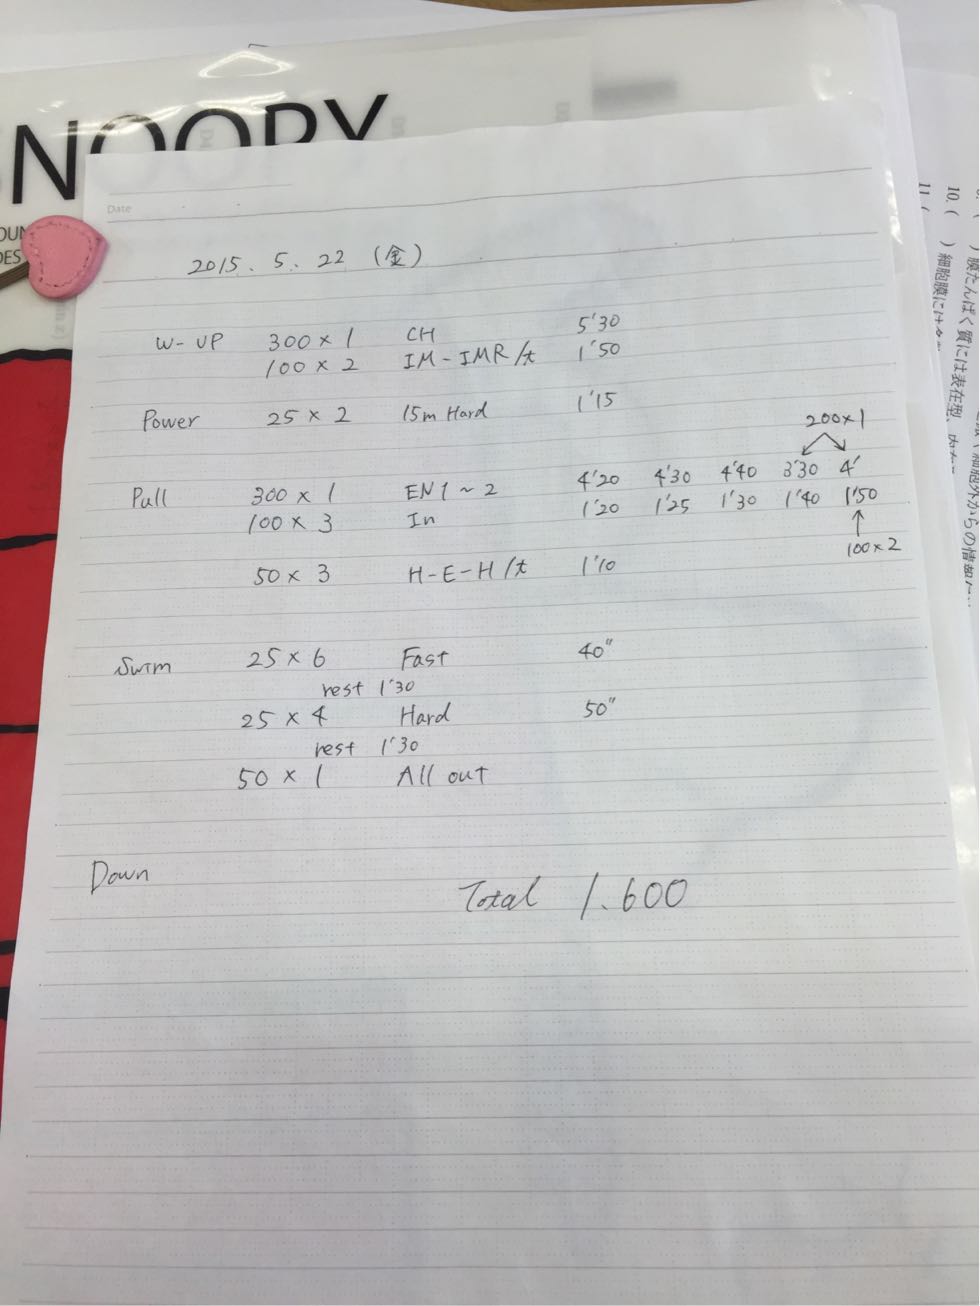 SNOOPY
Date
2015. 5. 22 (金)
W-UP 300 × 1 CH 5'30
100 × 2 IM-IMR/t 1'50
Power 25 × 2 15m Hard 1'15
200×1
Pull 300 × 1 EN1~2 4'20 4'30 4'40 3'30 4'
100 × 3 In 1'20 1'25 1'30 1'40 1'50
100×2
50 × 3 H-E-H/t 1'10
Swim 25 × 6 Fast 40"
rest 1'30
25 × 4 Hard 50"
rest 1'30
50 × 1 All out
Down
Total 1.600
10. ( ) 膜たんぱく質には表在型、
11. ( ) 細胞膜には